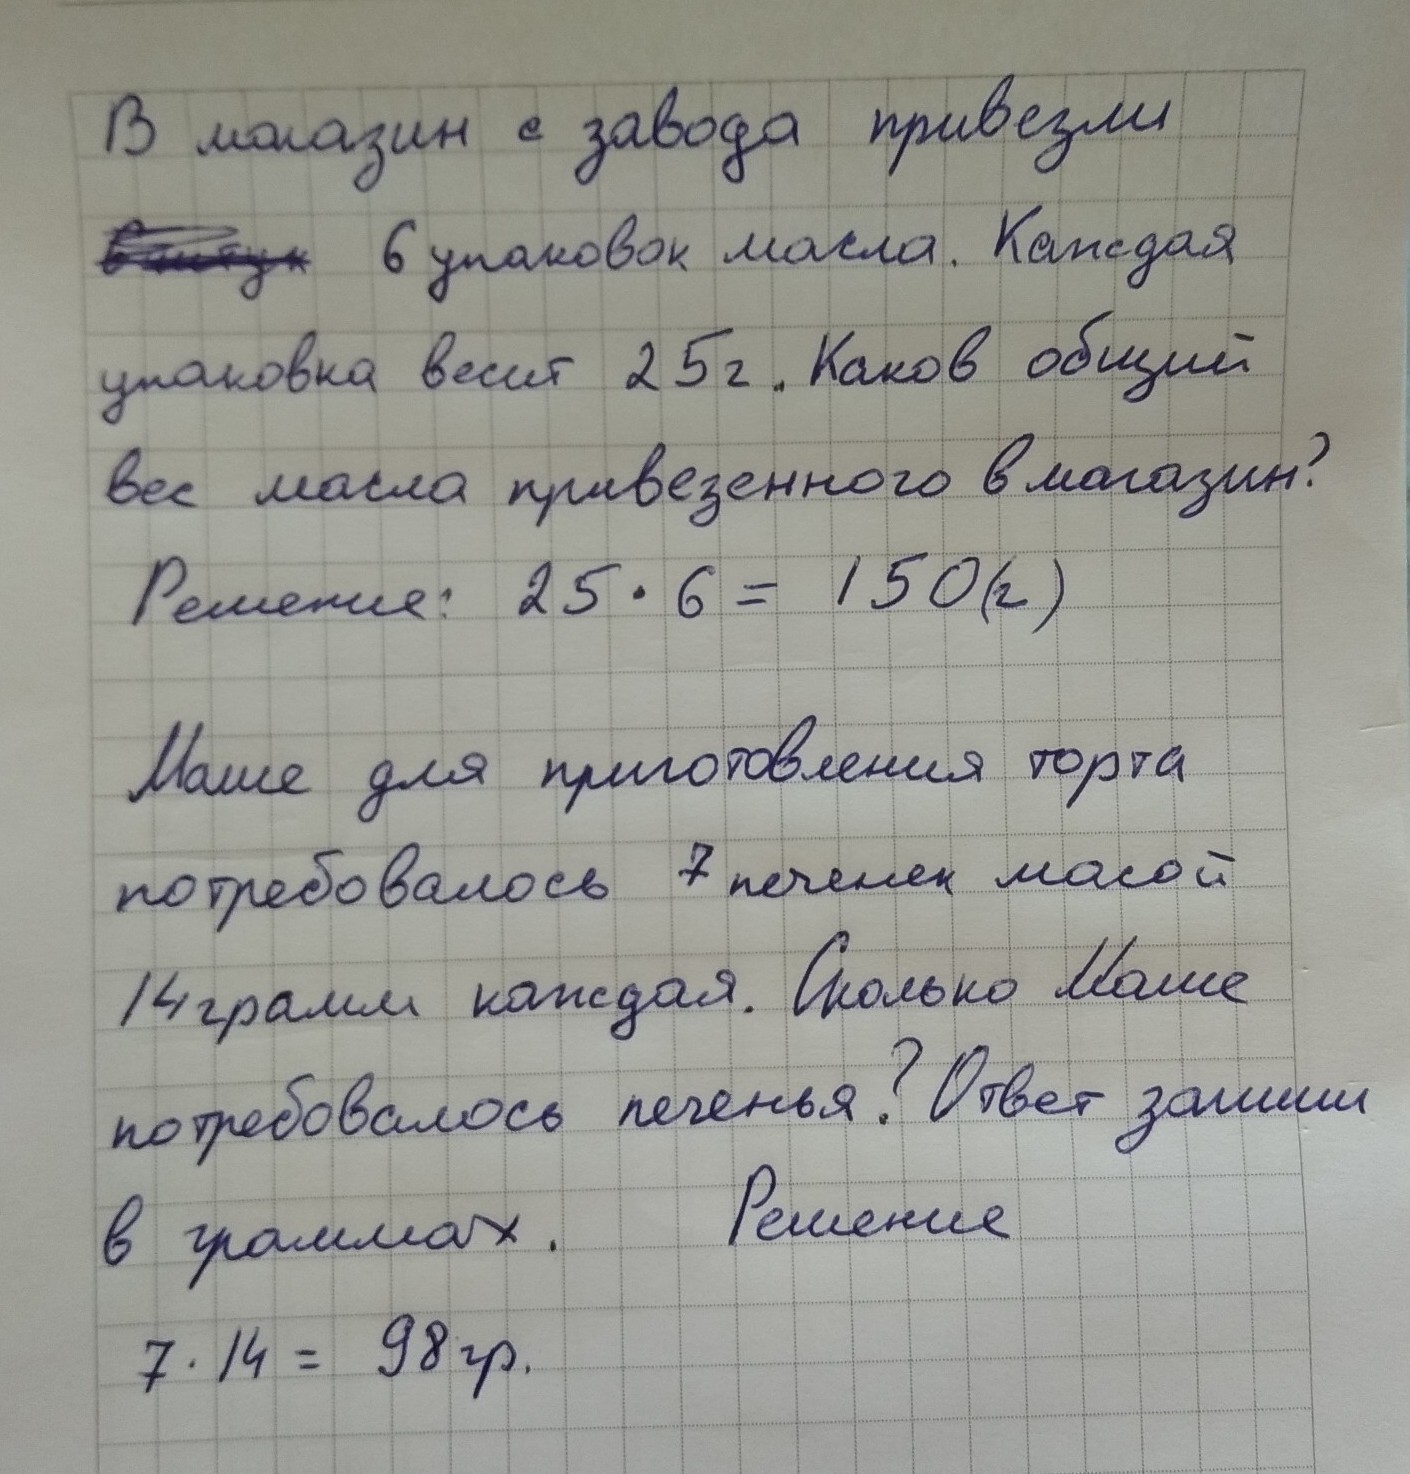 В магазин с завода привезли
6 упаковок масла. Каждая
упаковка весит 25г. Каков общий
вес масла привезенного в магазин?
Решение: 25 · 6 = 150(г)
Маше для приготовления торта
потребовалось 7 печенек масой
14 грамм каждая. Сколько Маше
потребовалось печенья? Ответ запиши
в граммах. Решение
7 · 14 = 98 гр.